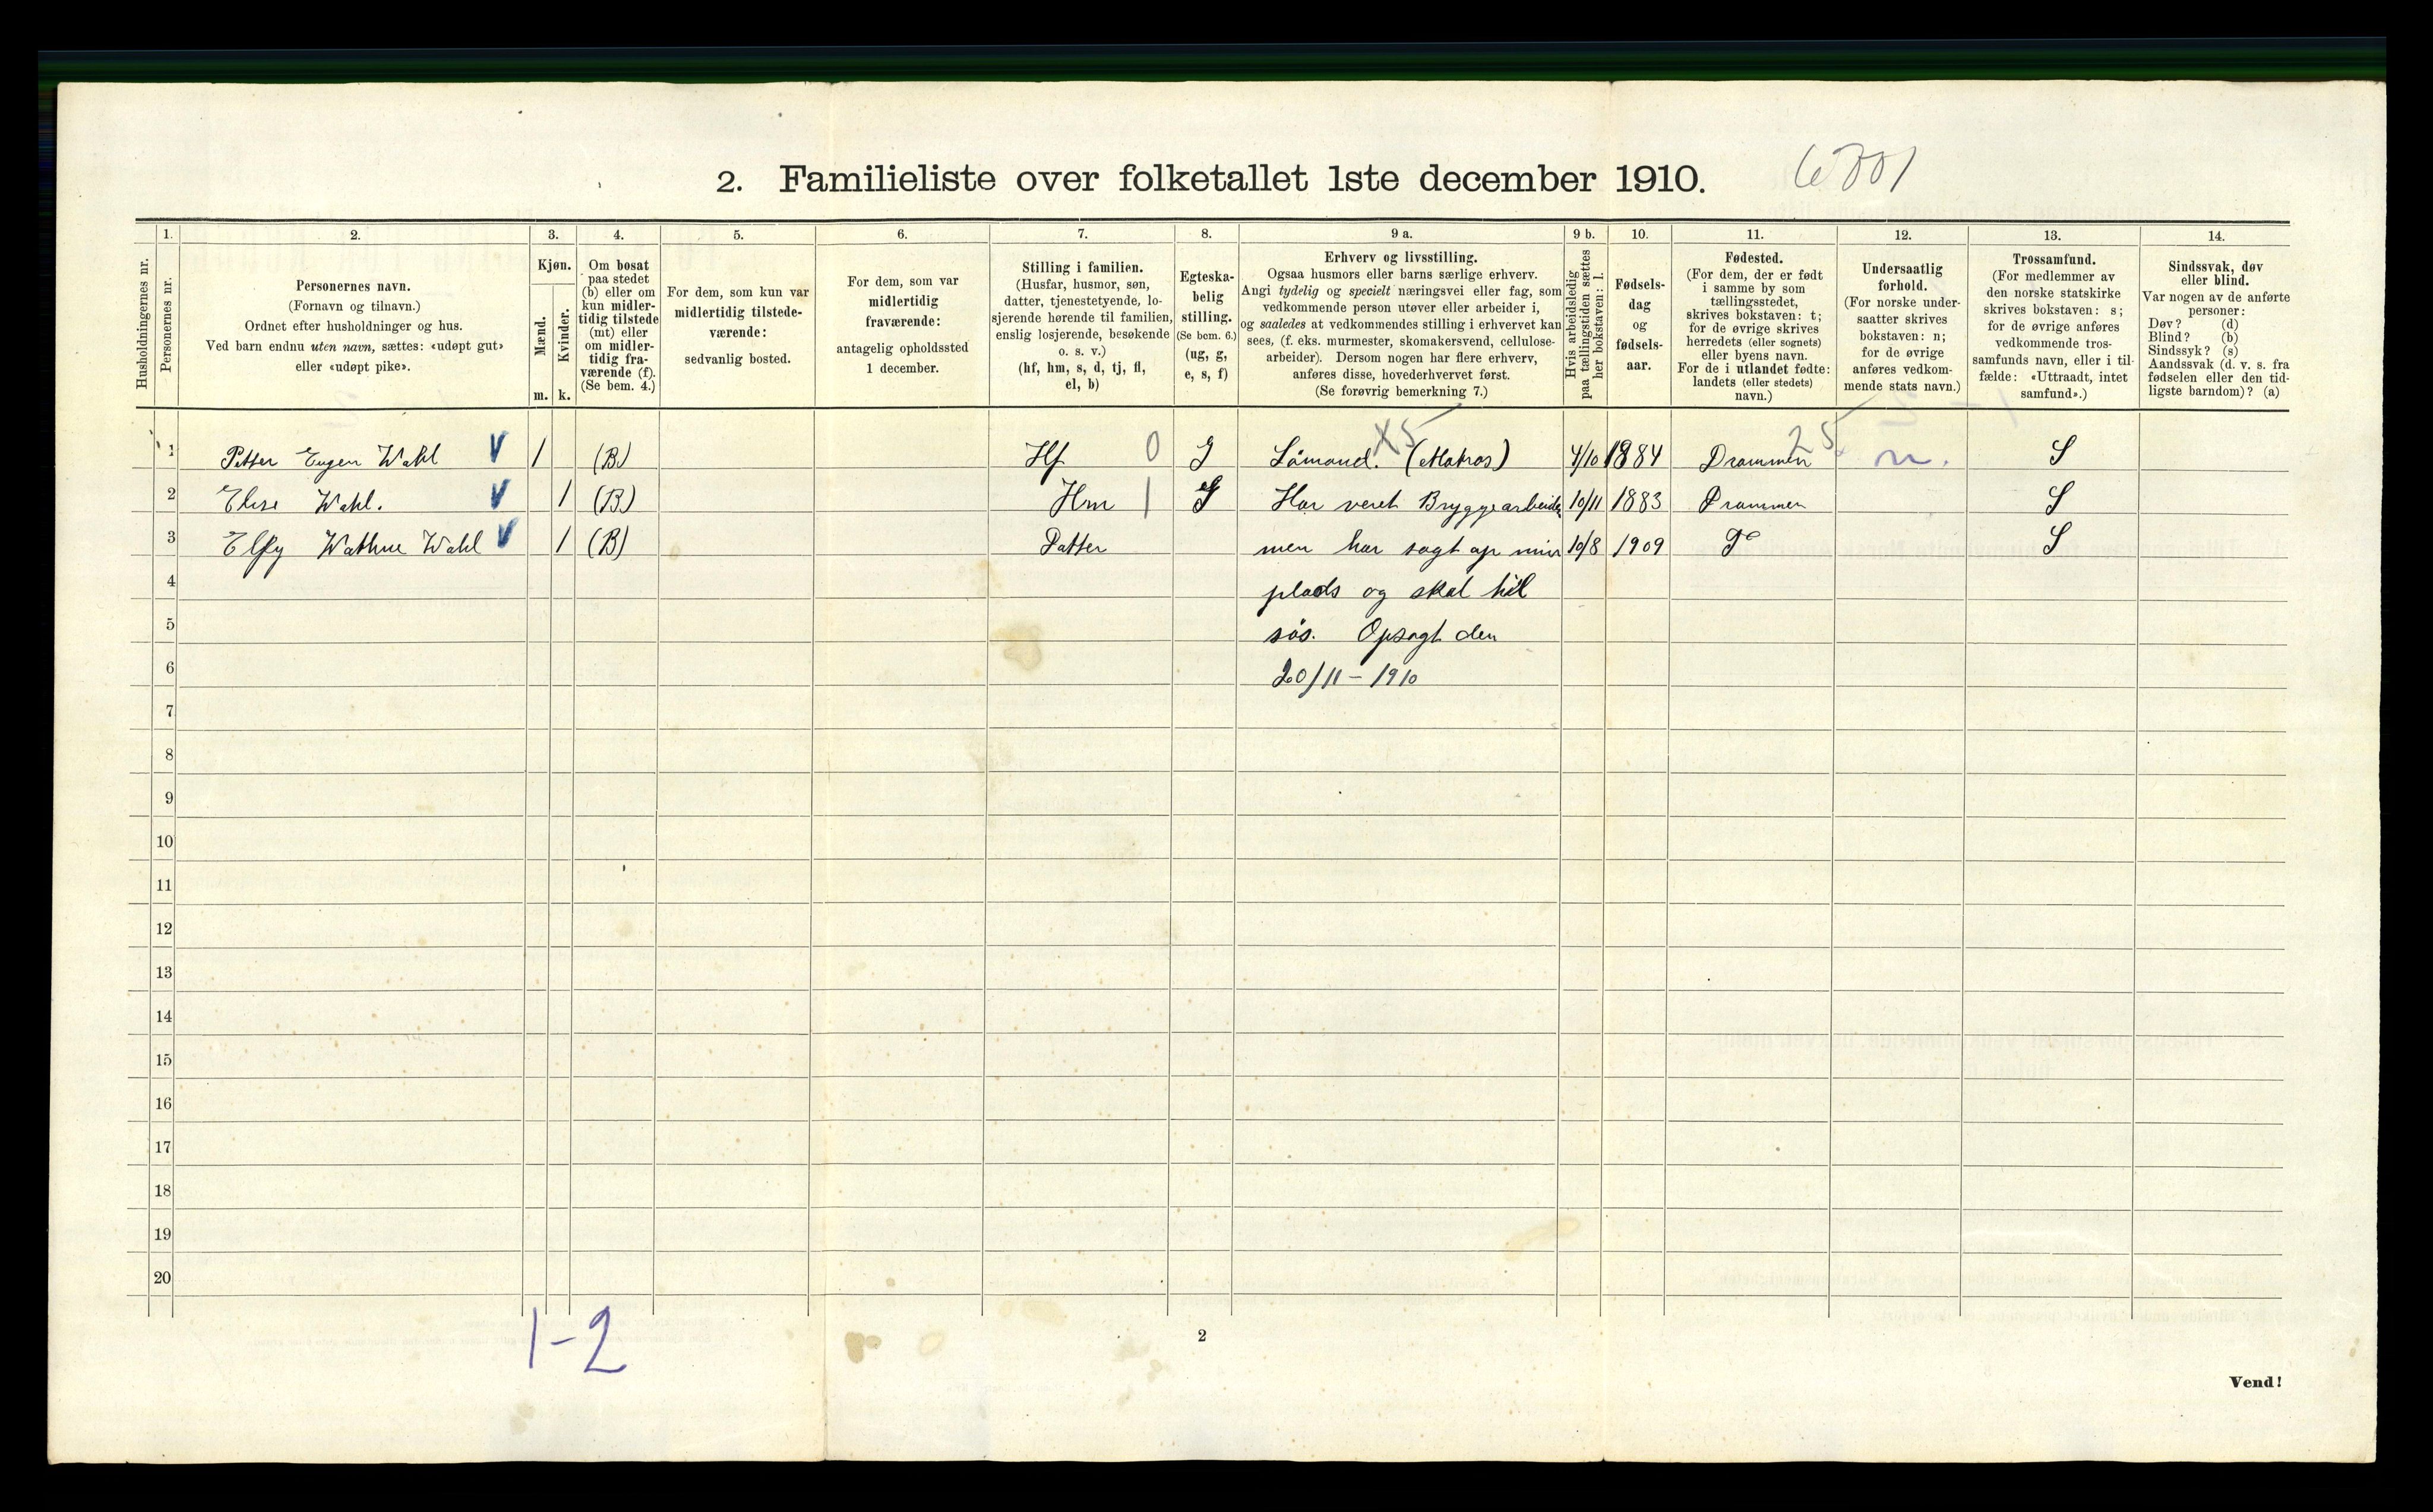 2. Familieliste over folketallet 1ste december 1910.
Husholdningernes nr.
1.
Personernes nr.
2.
Personernes navn.
(Fornavn og tilnavn.)
Ordnet efter husholdninger og hus.
Ved barn endnu uten navn, sættes: «udøpt gut»
eller «udøpt pike».
3.
Kjøn.
Mænd.
Kvinder.
m.
k.
4.
Om bosat
paa stedet
(b) eller om
kun midler-
tidig tilstede
(mt) eller
om midler-
tidig fra-
værende (f).
(Se bem. 4.)
5.
For dem, som kun var
midlertidig tilstede-
værende:
sedvanlig bosted.
6.
For dem, som var
midlertidig
fraværende:
antagelig opholdssted
1 december.
7.
Stilling i familien.
(Husfar, husmor, søn,
datter, tjenestetyende, lo-
sjerende hørende til familien,
enslig losjerende, besøkende
o. s. v.)
(hf, hm, s, d, tj, fl,
el, b)
8.
Egteska-
belig
stilling.
(Se bem. 6.)
(ug, g,
e, s, f)
9 a.
Erhverv og livsstilling.
Ogsaa husmors eller barns særlige erhverv.
Angi tydelig og specielt næringsvei eller fag, som
vedkommende person utøver eller arbeider i,
og saaledes at vedkommendes stilling i erhvervet kan
sees, (f. eks. murmester, skomakersvend, cellulose-
arbeider). Dersom nogen har flere erhverv,
anføres disse, hovederhvervet først.
(Se forøvrig bemerkning 7.)
9 b.
Hvis arbeidsledig
paa tællingstiden sættes
her bokstaven: l.
10.
Fødsels-
dag
og
fødsels-
aar.
11.
Fødested.
(For dem, der er født
i samme by som
tællingsstedet,
skrives bokstaven: t;
for de øvrige skrives
herredets (eller sognets)
eller byens navn.
For de i utlandet fødte:
landets (eller stedets)
navn.)
12.
Undersaatlig
forhold.
(For norske under-
saatter skrives
bokstaven: n;
for de øvrige
anføres vedkom-
mende stats navn.)
13.
Trossamfund.
(For medlemmer av
den norske statskirke
skrives bokstaven: s;
for de øvrige anføres
vedkommende tros-
samfunds navn, eller i til-
fælde: «Uttraadt, intet
samfund».)
14.
Sindssvak, døv
eller blind.
Var nogen av de anførte
personer:
Døv? (d)
Blind? (b)
Sindssyk? (s)
Aandssvak (d. v. s. fra
fødselen eller den tid-
ligste barndom)? (a)
1 Petter Eugen Wahl V 1 (B) Hf 0 G Sömand. X5 (Matros) 4/10 1884 Drammen 25 n. S
2 Elise Wahl. V 1 (B) Hm 1 G Har veret Bryggearbeider 10/11 1883 Drammen S
3 Elfy Wathne Wahl V 1 (B) Datter men har sagt op min 10/8 1909 Do S
4 plads og skal til
5 sös. Opsagt den
6 20/11 - 1910
7
8
9
10
11
12
13
14
15
16
17
18
19
20
1-2
2
Vend!